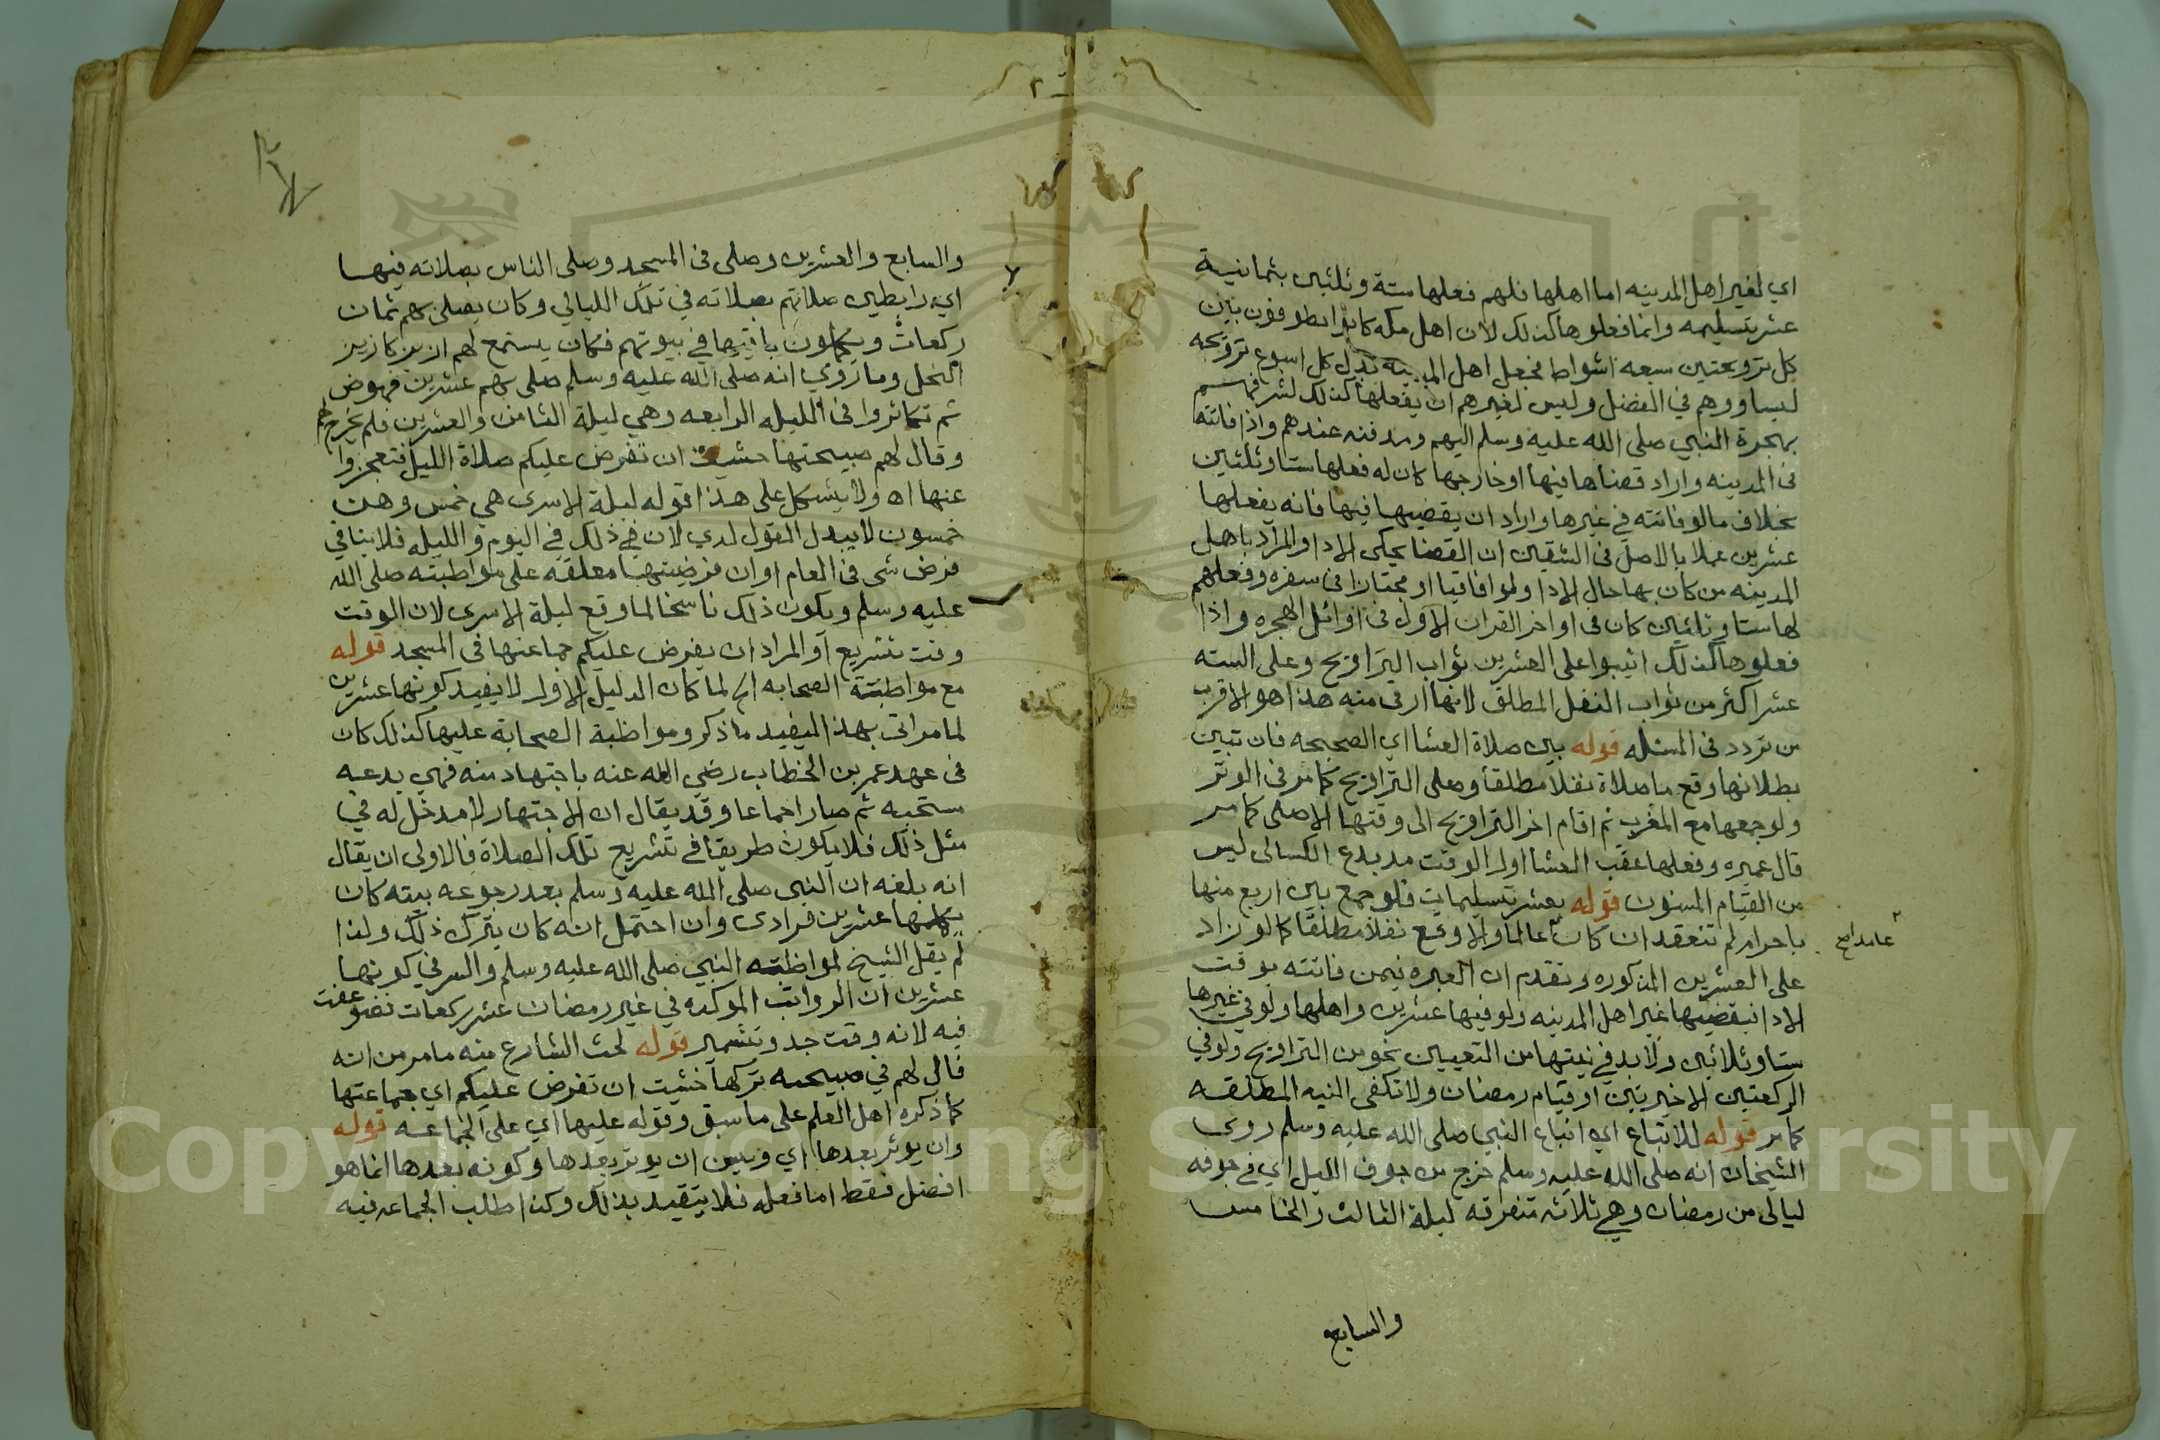 اي لغير اهل المدينه اما اهلها فلهم فعلها ستة وثلثين بثمانية
عشر تسليمه وانما فعلوها كذلك لان اهل مكه كانوا يطوفون بين
كل ترويحتين سبعه اشواط فجعل اهل المدينة بدل كل اسبوع ترويحه
ليساووهم في الفضل وليس لغيرهم ان يفعلها كذلك لشرفهم
بهجرة النبي صلى الله عليه وسلم اليهم ومدفنه عندهم واذا فاتته
فى المدينه واراد قضاها فيها او خارجها كان له فعلها ستا وثلثين
بخلاف ما لو فاتته في غيرها واراد ان يقضيها فيها فانه يفعلها
عشرين عملا بالاصل فى الشقين ان القضا يحكى الادا والمراد باهل
المدينه من كان بها حال الادا ولو افاقيا او مجتازا فى سفره وفعلهم
لها ستا وثلثين كان فى اواخر القرن الاول فى اوائل الهجره واذا
فعلوها كذلك اثيبوا على العشرين ثواب التراويح وعلى السته
عشر اكثر من ثواب النفل المطلق لانها ارقى منه هذا هو الاقرب
من تردد فى المسئله قوله بين صلاة العشا اي الصحيحه فان تبين
بطلانها وقع ما صلاه نفلا مطلقا وصلى التراويح كما مر فى الوتر
ولو جمعها مع المغرب ثم اقام اخر التراويح الى وقتها الاصلى كما مر
قال عميره وفعلها عقب العشا اول الوقت من بدع الكسالى ليس
من القيام المسنون قوله بعشر تسليمات فلو جمع بين اربع منها
باحرام لم تنعقد ان كان عالما والا وقع نفلا مطلقا كما لو زاد
عامدا صح
على العشرين المذكوره وتقدم ان العبره فيمن فاتته بوقت
الادا فيقضيها غير اهل المدينه ولو فيها عشرين واهلها ولو في غيرها
ستا وثلاثين ولا بد في نيتها من التعيين بنحو من التراويح ولو في
الركعتين الاخيرتين او قيام رمضان ولا تكفى النيه المطلقه
كما مر قوله للاتباع اي اتباع النبي صلى الله عليه وسلم روى
الشيخان انه صلى الله عليه وسلم خرج من جوف الليل اي في جوفه
ليالى من رمضان وهي ثلاثه متفرقه ليلة الثالث والخامس
والسابع
والسابع والعشرين وصلى فى المسجد وصلى الناس بصلاته فيها
اي رابطين صلاتهم بصلاته في تلك الليالي وكان يصلى بهم ثمان
ركعات ويكملون باقيها في بيوتهم فكان يستمع لهم ازيز كازيز
النحل وما روي انه صلى الله عليه وسلم صلى بهم عشرين فهوض
ثم تكاثروا فى الليله الرابعه وهي ليلة الثامن والعشرين فلم يخرج لهم
وقال لهم صبيحتها خشيت ان تفرض عليكم صلاة الليل فتعجزوا
عنها اه ولا يشكل على هذا قوله ليلة الاسرى هي خمس وهن
خمسون لا يبدل القول لدي لان في ذلك في اليوم والليله فلا ينافي
فرض شى فى العام او ان فرضيتها معلقه على مواظبته صلى الله
عليه وسلم ويكون ذلك ناسخا لما وقع ليلة الاسرى لان الوقت
وقت تشريع او المراد ان يفرض عليكم جماعتها فى المسجد قوله
مع مواظبته الصحابه الخ لما كان الدليل الاول لا يفيد كونها عشرين
لما مر اتى بهذا ليفيد ما ذكر ومواظبة الصحابة عليها كذلك كان
فى عهد عمر بن الخطاب رضي الله عنه باجتهاد منه فهي بدعه
مستحبه ثم صار اجماعا وقد يقال ان الاجتهاد لا مدخل له في
مثل ذلك فلا يكون طريقا في تشريع تلك الصلاة فالاولى ان يقال
انه بلغه ان النبي صلى الله عليه وسلم بعد رجوعه بيته كان
يكملها عشرين فرادى وان احتمل انه كان يترك ذلك ولذا
لم يقل الشيخ لمواظبته النبي صلى الله عليه وسلم والسر في كونها
عشرين ان الرواتب المؤكده في غير رمضان عشر ركعات فضوعفت
فيه لانه وقت جد وتشمير قوله لحث الشارع منه ما مر من انه
قال لهم في صبيحه تركها خشيت ان تفرض عليكم اي جماعتها
كما ذكره اهل العلم على ما سبق وقوله عليها اي على الجماعه قوله
وان يوتر بعدها اي ويسن ان يوتر بعدها وكونه بعدها انما هو
افضل فقط اما فعله فلا يتقيد بذلك وكذا طلب الجماعه فيه
Copyright © King Saud University